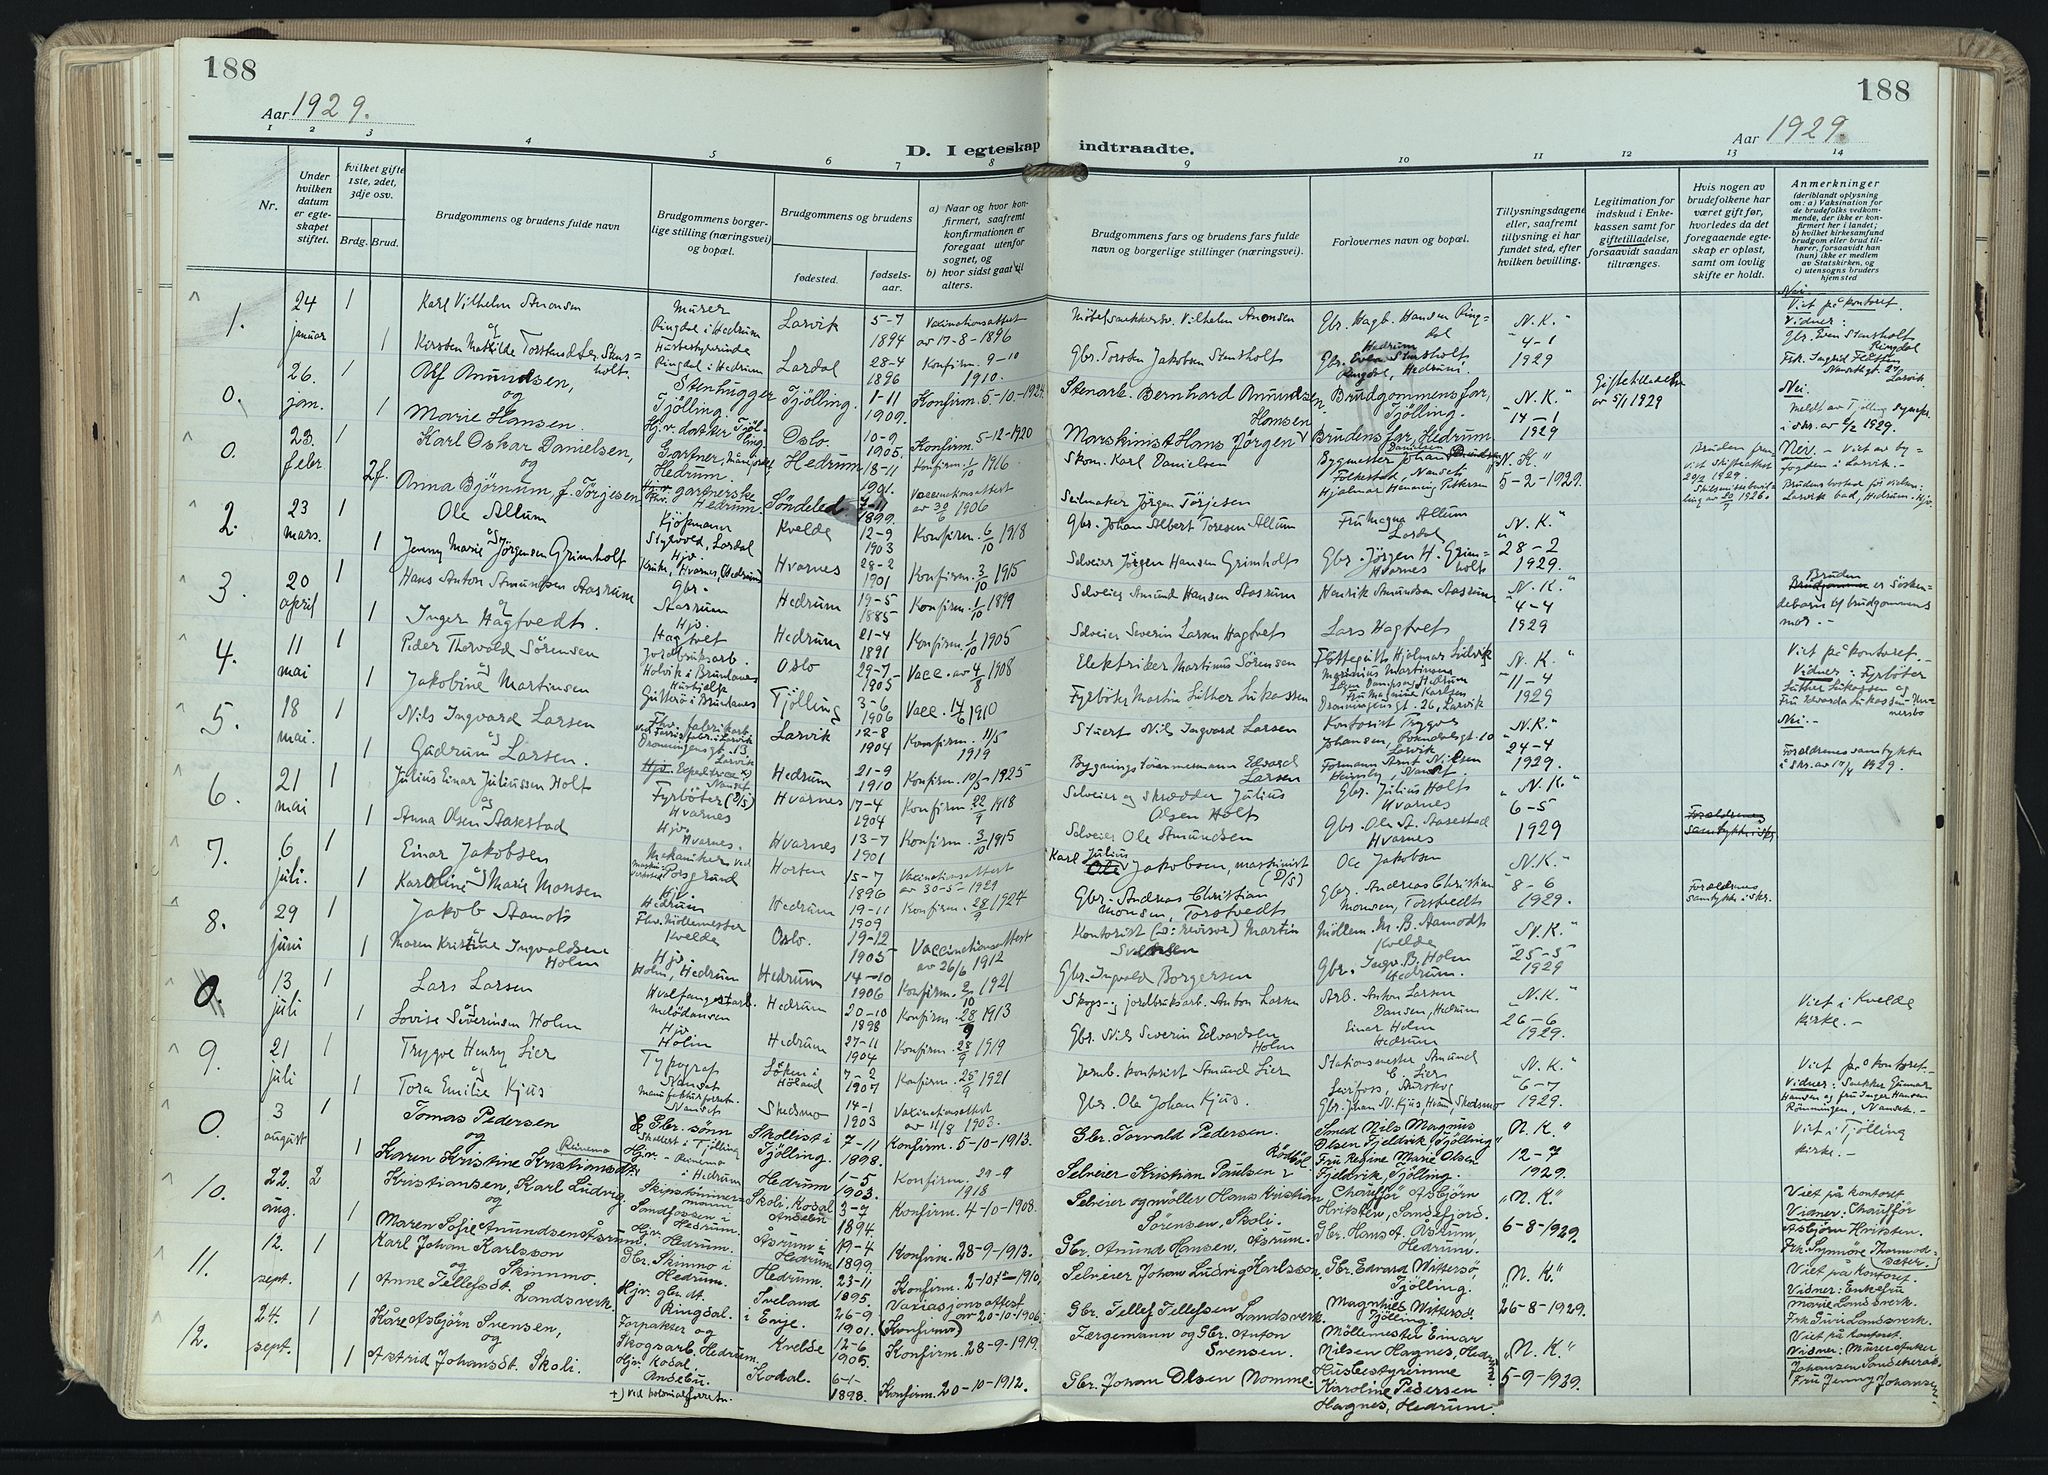 188
188
Aar 1929.
Aar 1929.
1 2 3 4 5 6 7 8 9 10 11 12 13 14
D. I egteskap indtraadte.
Nr.
Under hvilken datum er egteskapet stiftet.
hvilket gifte 1ste, 2det, 3dje osv.
Brdg. Brud.
Brudgommens og brudens fulde navn
Brudgommens borgerlige stilling (næringsvei) og bopæl.
Brudgommens og brudens
fødested.
fødselsaar.
a) Naar og hvor konfirmert, saafremt konfirmationen er foregaat utenfor sognet, og
b) hvor sidst gaat til alters.
Brudgommens fars og brudens fars fulde navn og borgerlige stillinger (næringsvei).
Forlovernes navn og bopæl.
Tillysningsdagene eller, saafremt tillysning ei har fundet sted, efter hvilken bevilling.
Legitimation for indskud i Enkekassen samt for giftetilladelse, forsaavidt saadan tiltrænges.
Hvis nogen av brudefolkene har været gift før, hvorledes da det foregaaende egteskap er opløst, samt om lovlig skifte er holdt.
Anmerkninger
(deriblandt oplysning om: a) Vaksination for de brudefolks vedkommende, der ikke er konfirmert her i landet; b) hvilket kirkesamfund brudgom eller brud tilhører, forsaavidt han (hun) ikke er medlem av Statskirken, og c) utensogns bruders hjemsted
1. 24 januar 1 Karl Vilhelm Amonsen Murer Ringdal i Hedrum Larvik 5-7 1894 Vaxinationsattest av 17-8-1896 Møbelsnekkersv. Vilhelm Amonsen Gbr. Hagb. Hansen Ringdal Hedrum "N.K." 4-1 1929 Nei. Viet på kontoret. Vidner:
og
1 Kirsten Mathilde Torstensdtr. Stusholt. Husbestyrerinde Ringdal i Hedrum Lardal 28-4 1896 Konfirm. 9-10 1910. Gbr. Torsten Jakobsen Stensholt Gbr. Even Stensholt Ringdal, Hedrum. Gbr. Even Stensholt Ringdal Frk. Ingrid Larvik.
0. 26. jan. 1 Alf Amundsen, Stenhugger Tjølling. Tjølling. 1-11 1909. Konfirm. 5-10-1924. Stenarb. Bernhard Amundsen. Brudgommens far, Tjølling. "N.K." 14-1 1929 Giftetilladelse av 5/1 1929 Nei. Meldt av Tjølling
og
1 Marie Hansen. Hj.v. datter Tjølling Oslo. 10-9 1905. Konfirm. 5-12-1920 Maskinist Hans Jørgen Hansen Brudens far, Hedrum. i skr. av 6/2 1929.
0. 23. febr. 1 Karl Oskar Danielsen, Gartner, Hedrum. Hedrum 18-11 1901. Konfirm. 1/10 1916. Skom. Karl Danielsen Bygmester Johan Folkestad, Nanset "N.K." 5-2-1929. Nei. - Viet av byfogden i Larvik.
og
2f. Anna Bjørnum, f. Tørjesen gartnerske Hedrum. Søndeled. 7-11 1899. Vaccinationsattest av 30/6 1906 Seilmaker Jørgen Tørjesen Hjalmar Henning Pettersen Bruden fra
2. 23 mars. Ole Allum Kjøpmann Styrvold, Lardal Kvelde 12-9 1903 Konfirm. 6/10 1918 Gbr. Johan Albert Toresen Allum Fru Magna Allum Lardal "N.K." 28-2 1929.
og
1 Jenny Marie Jørgensen Grimholt Hjv. Hvarnes, Hedrum Hvarnes 28-2 1901 Konfirm. 3/10 1915 Selveier Jørgen Hansen Grimholt Gbr. Jørgen H. Grimholt Hvarnes
3. 20 april 1 Hans Anton Amundsen Aasrum Gbr. Aasrum Hedrum 19-5 1885 Konfirm. 1/10 1899 Selveier Amund Hansen Aasrum Henrik Amundsen Aasrum "N.K." 4-4 1929 Bruden er søskendebarn af brudgommens mor. -
og
1 Inger Hagtvedt. Hjv. Hagtvet Hedrum 21-4 1891 Konfirm. 1/10 1905 Selveier Severin Larsen Hagtvet Lars Hagtvet
4. 11 mai 1 Peder Thorvald Sørensen Jordbruksarb. Oslo 29-7 1905 Vacc. av 4/8 1908 Elektriker Martinus Sørensen "N.K." 11-4 1929 Viet på kontoret. Vidner: Fyrbøter Luther Lukassen og Fru Edvarda Lukassen
og
1 Jakobine Martinsen Hushjelp Tjølling 3-6 1906 Vacc. 14/6 1910 Fyrbøter Martin Luther Lukassen Fru Mathine Karlsen Dronningensgt. 26, Larvik
5. 18 mai. 1 Nils Ingvard Larsen Dronningensgt. 13 Larvik Larvik 12-8 1904 Konfirm. 11/5 1919 Stuert Nils Ingvard Larsen Kontorist Trygve Johansen, Larvik "N.K." 24-4 1929. Nei. -
og
1 Gudrun Larsen. Expeditrice Nanset Hedrum 21-9 1910 Konfirm. 10/5-1925 Bygningstømmermann Edvard Larsen Formann Arnt Nilsen Heimly, Nanset Foreldrenes samtykke i skr. av 17/4 1929.
6. 21 mai 1 Julius Einar Juliussen Holt Fyrbøter (D/S) Hvarnes Hvarnes 17-4 1904 Konfirm. 22/9 1918 Selveier og skrædder Julius Olsen Holt Gbr. Julius Holt Hvarnes "N.K." 6-5 1929
og
1 Anna Olsen Aasestad Hjv. Hvarnes. Hvarnes 13-7 1901 Konfirm. 3/10 1915 Selveier Ole Amundsen Gbr. Ole A. Aasestad Hvarnes
7. 6 juli. 1 Einar Jakobsen Mekaniker ved Porsgrund Horten 15-7 1896 Vaxinationsattest av 30-5 1929 Karl Julius Jakobsen, maskinist (D/S) Ole Jakobsen "N.K." 8-6 1929. Foreldrenes samtykke i skr.
og
1 Karoline Marie Monsen Hjv. Hedrum Hedrum 19-11 1909 Konfirm. 28/9 1924 Gbr. Andreas Christian Monsen, Torstvedt Gbr. Andreas Christian Monsen, Torstvedt
8. 29 juni 1 Jakob Aamodt Fhv. Møllemester Kvelde Oslo. 19-12 1905 Vaccinationsattest av 26/6 1912 Kontorist (o: revisor) Martin Møllem. M. B. Aamodt Kvelde "N.K." 25-5 1929
og
1 Maren Kristine Ingvaldsen Holm Hjv. Holm, Hedrum Hedrum 14-10 1906 Konfirm. 2/10 1921 Gbr. Ingvald Borgersen Gbr. Ingv. B. Holm Hedrum.
0. 13 juli 1 Lars Larsen Hvalfangstarb. Hedrum 20-10 1898 Konfirm. 28/9 1913 Skogs- og jordbruksarb. Anton Larsen Arb. Anton Larsen Dansen, Hedrum "N.K." 26-6 1929. Viet i Kvelde kirke. -
og
1 Lovise Severinsen Holm Hjv. Holm Hedrum 27-11 1904 Konfirm. 28/9 1919 Gbr. Nils Severin Edvardsen Holm Einar Holm Hedrum
9. 21 juli 1 Trygve Henry Lier Typograf Nanset Løken i Høland 7-2 1907 Konfirm. 25/9 1921 Jernb. kontorist Amund Lier Stationsmester Amund E. Lier "N.K." 6-7 1929. Viet på kontoret. - Vidner: Snekker Gunnar Hansen og fru Inger Hansen Rømmingen, Nanset. -
og
1 Tora Emilie Kjus manufakturforretn. Nanset Skedsmo 14-1 1903 Vaxinationsattest av 11/8 1903. Gbr. Ole Johan Kjus. Gbr. Johan N. Kjus, Skedsmo
0. 3 august 1 Tomas Pedersen Gbr. sønn Skallist i Tjølling Skollist i Tjølling. 7-11 1898. Konfirm. 5-10-1913. Gbr. Torvald Pedersen. Smed Nils Magnus Olsen Fjeldvik, Tjølling "N.K." 12-7 1929. Viet i Tjølling kirke. -
og Reinemo
1 Karen Kristine Kristiansdtr. Hjv. Reinemo i Hedrum Hedrum 1-5 1903. Konfirm. 29-9 1918 Selveier Kristian Paulsen Rødbøl. Fru Regine Marie Olsen Fjeldvik, Tjølling
10. 22. aug. 2 Kristiansen, Karl Ludvig. Skipstømmermann Sandfossen i Hedrum. Skoli, Kodal Andebu 3-7 1894. Konfirm. 4-10-1908. Selveier og møller Hans Kristian Sørensen, Skoli. Chauffør Asbjørn Hvitsten, Sandefjord. "N.K." 6-8-1929. Viet på kontoret Vidner: Chauffør Asbjørn Hvitsten. Frk. Synnøve
og
1 Maren Sofie Amundsen Åsrum. Hjv. Hedrum. Åsrum i Hedrum 19-4 1899. Konfirm. 28-9-1913. Gbr. Amund Hansen, Åsrum. Gbr. Hans A. Åsrum, Hedrum.
11. 12. sept. 1 Karl Johan Karlsson Skinmo. Gbr. Skinmo i Hedrum. Hedrum. 23-11 1895. Konfirm. 2-10-1910. Selveier Johan Ludvig Karlsson, Gbr. Edvard Wittersø, Tjølling. "N.K." 26-8-1929. Viet på kontoret. Vidner: Enkefru Marie Landsverk. Frk. Landsverk.
og
1 Anne Tellefsdt. Landsverk. Hjv. gbr. dt. Ringdal. Iveland i Evje. 26-9 1901. Vaxiasjonsattest av 20-10-1906. (Konfirm) Gbr. Tellef Tellefsen Landsverk. Magnhild Wittersø Tjølling.
12. 24. sept. 1 Kåre Asbjørn Svensen, Forpakter og Skogsarb. Hedrum. Kvelde 12-6 1905. Konfirm. 28-9-1919. Færgemann og Gbr. Anton Svensen. Møllemester Einar Nilsen Hagnes, Hedrum "N.K." 5-9-1929. Viet på kontoret. Vidner: Murer Anker Johansen Fru Jenny Johansen
og
1 Astrid Johansdt. Skoli. Hjv. Kodal. Andebu. Kodal. 6-1- 1898. Konfirm. 20-10-1912. Gbr. Johan Olsen Nomme. Husbestyrerinne Karoline Pedersen Hagnes, Hedrum.
+) ved kolonialforretn.